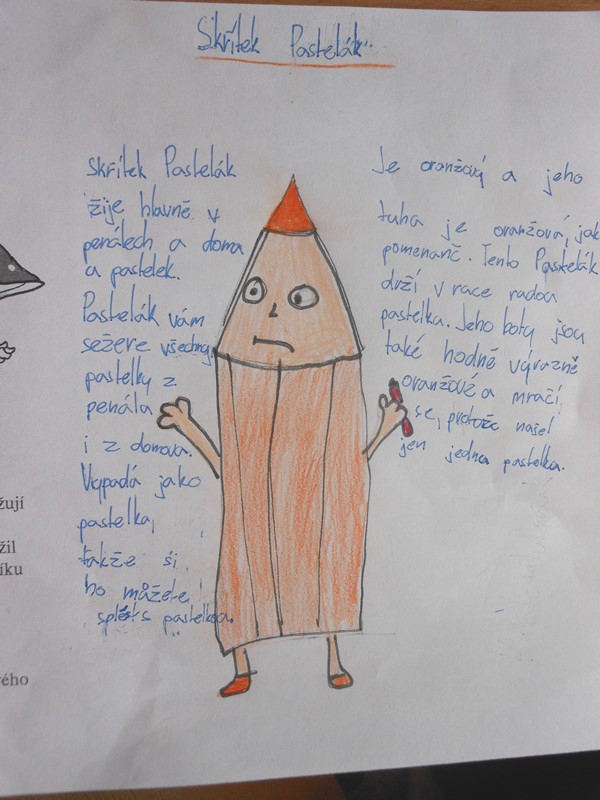 Skřítek Pastelák
Skřítek Pastelák
žije hlavně v
penálech a doma
u pastelek.
Pastelák vám
sežere všechny
pastelky z
penála
i z domova.
Vypadá jako
pastelka,
takže si
ho můžete
splést s pastelkou.
Je oranžový a jeho
tuha je oranžová, jak
pomeranč. Tento Pastelák
drží v race
pastelka. Jeho boty jsou
také hodně výrazně
oranžové a mračí
se, protože našel
jen jednu pastelka.
žují
žil
íku
vého